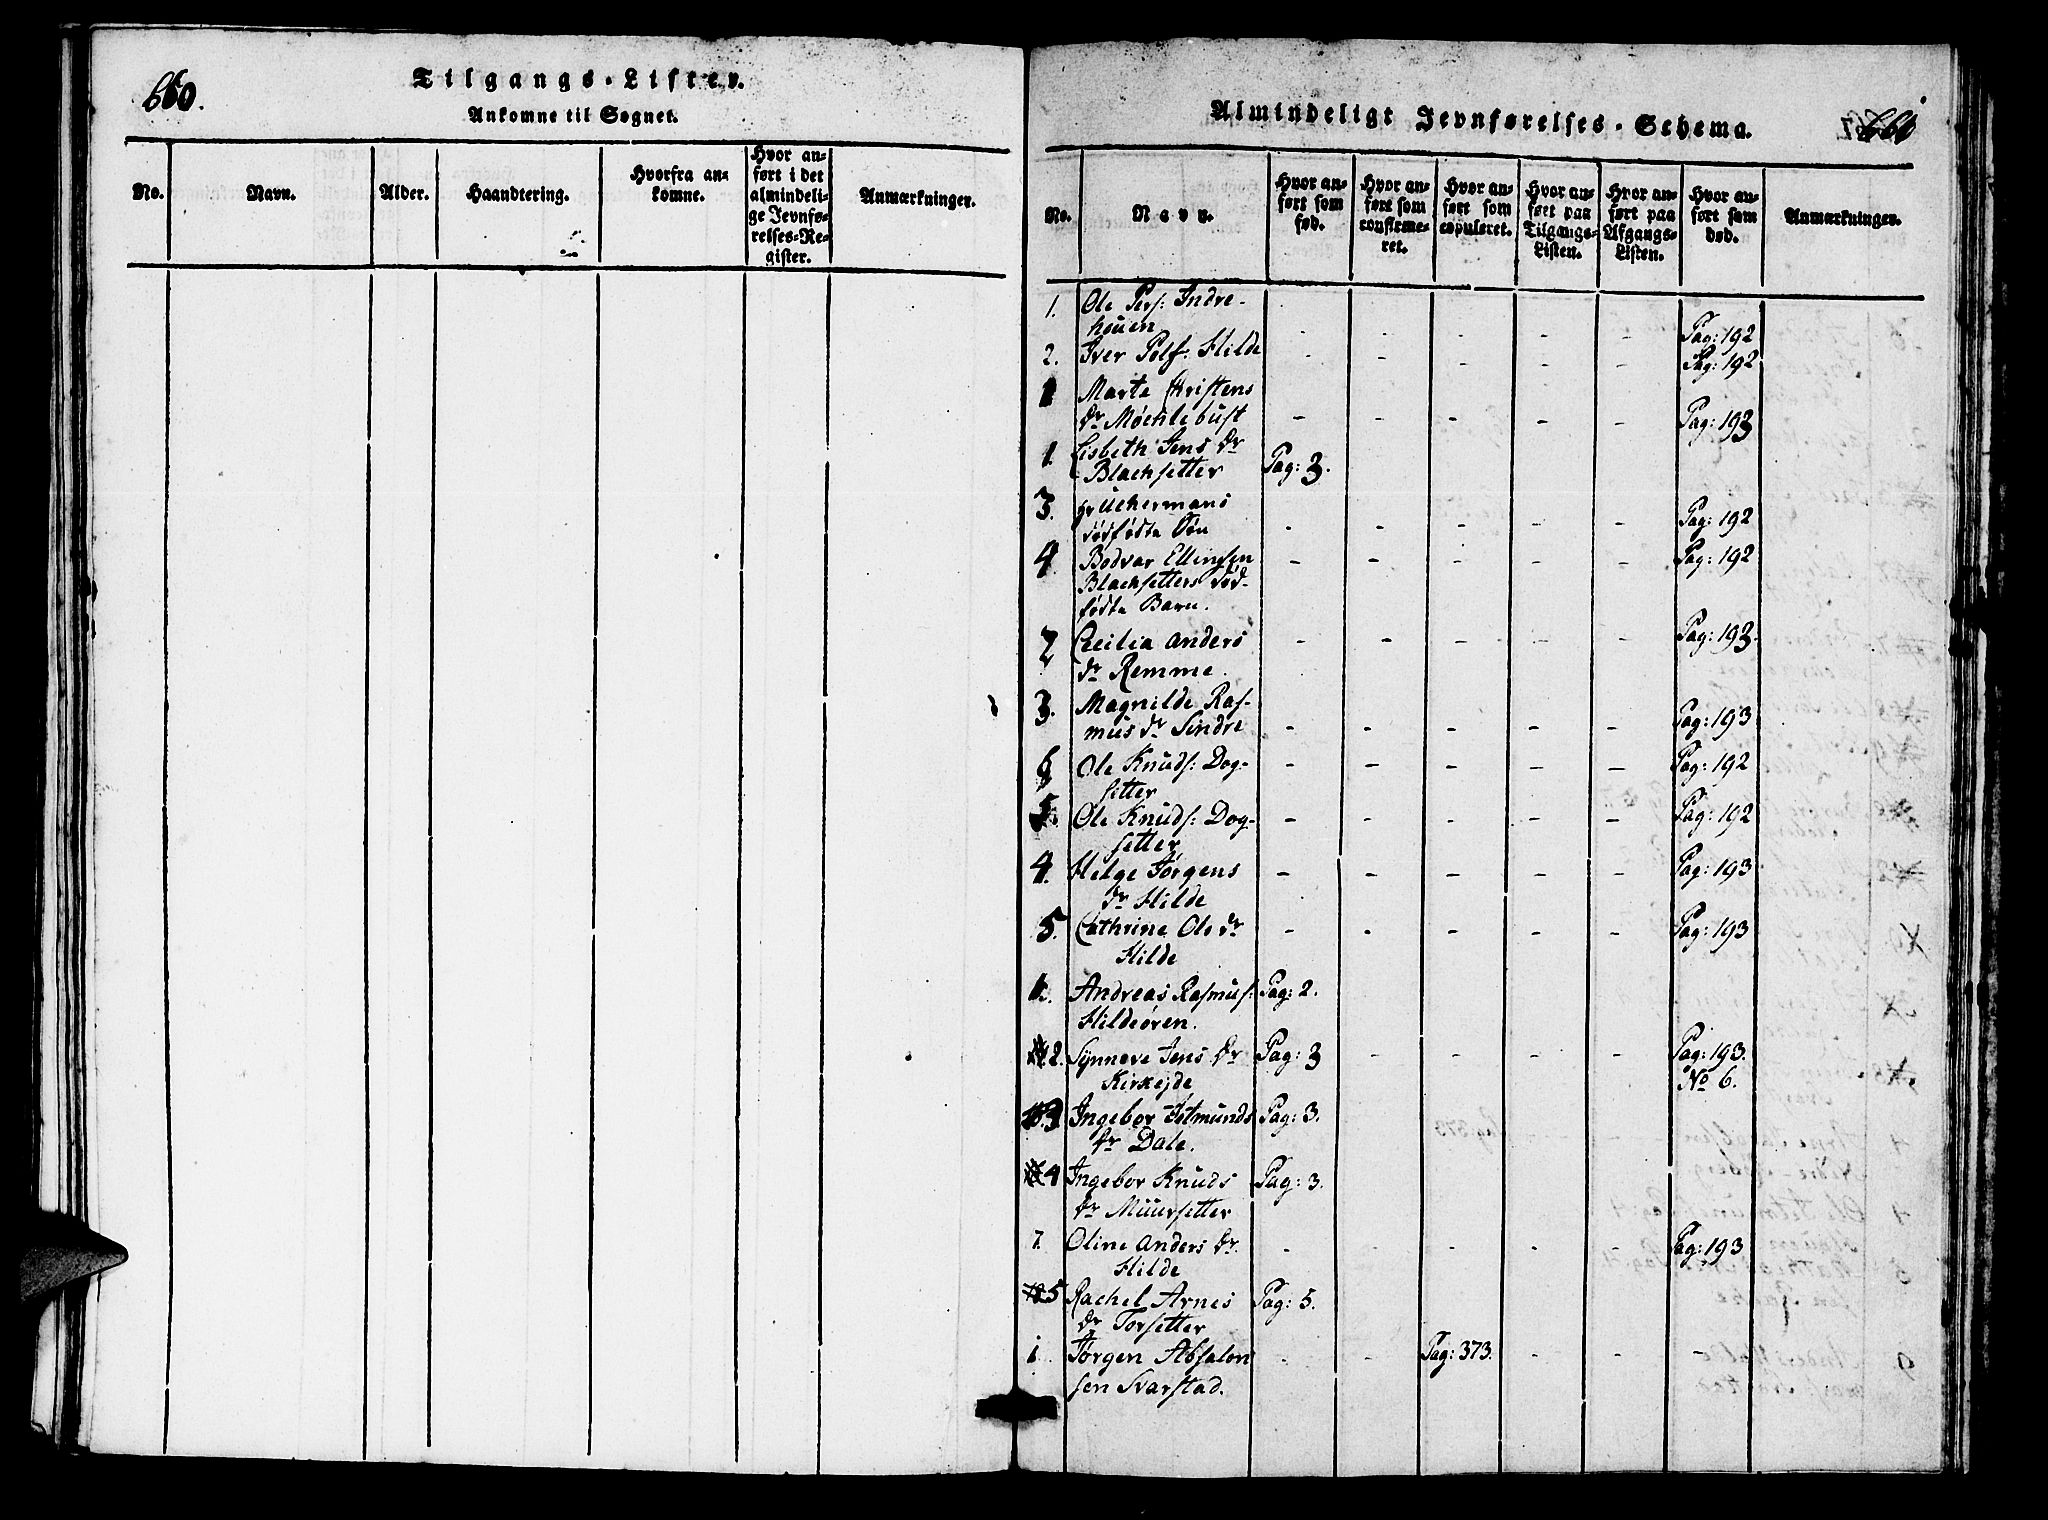 660.
Tilgangs-Lister.
Ankomne til Sognet.
No.
Navn.
Alder.
Haandtering.
Hvorfra an-
komne.
Hvor an-
ført i det
almindeli-
ge Jevnfø-
relses-Re-
gister.
Anmærkninger.
Almindeligt Jevnførelses-Schema.
661
No.
Navn.
Hvor an-
ført som
fød.
Hvor an-
ført som
confirme-
ret.
Hvor an-
ført som
copuleret.
Hvor an-
ført paa
Tilgangs-
Listen.
Hvor an-
ført paa
Afgangs-
Listen.
Hvor an-
ført som
død.
Anmærkninger.
1. Ole Pers: Indre-
houen - - - - - Pag: 192
2. Iver Polf: Hilde - - - - - Pag: 192
1 Marta Kristens
dr Møchlebust - - - - - Pag: 193
1. Lisbeth Jens dr
Blachsetter Pag: 3.
3. Hr Uchermans
dødfødte Søn - - - - - Pag: 192
4 Bodvar Ellingsen - - - - - Pag: 192
Blachsetters død-
fødte Barn.
2 Cecilia Anders - - - - - Pag: 193.
dr Remme.
3. Magnilde Ras-
mus dr Sindre - - - - - Pag: 193
6 Ole Knuds: Dog- - - - - - Pag: 192
setter
5. Ole Knuds: Dog- - - - - - Pag: 192
setter
4. Helge Jørgens - - - - - Pag: 193
dr Hilde
5. Cathrine Ols dr - - - - - Pag: 193
Hilde
1. Andreas Rasmus: Pag: 2.
Hildeøren.
2. Synneve Jens dr Pag: 3 - - - - Pag: 193.
Kirkejde No 6.
3 Ingebor Istmunds Pag: 3.
dr Dale.
4 Ingebor Knuds Pag: 3.
dr Muursetter
7. Oline Anders dr. - - - - - Pag: 193
Hilde
5 Rachel Arnes Pag: 5.
dr Torsetter
1. Jørgen Absalon - - Pag: 373. - - -
sen Svarstad.